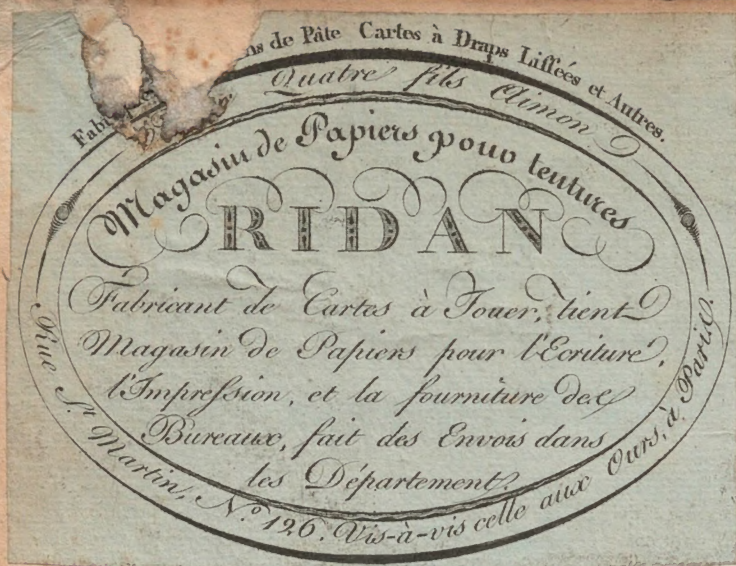 Fab ns de Pâte Cartes à Draps Lissées et Autres.
Quatre fils Aimon
Magasin de Papiers pour tentures
RIDAN
Fabricant de Cartes à Jouer, tient
Magasin de Papiers pour l'Ecriture,
l'Impression, et la fourniture des
Bureaux, fait des Envois dans
les Département.
Rue St. Martin, N.º 126. Vis-à-vis celle aux Ours, à Paris.